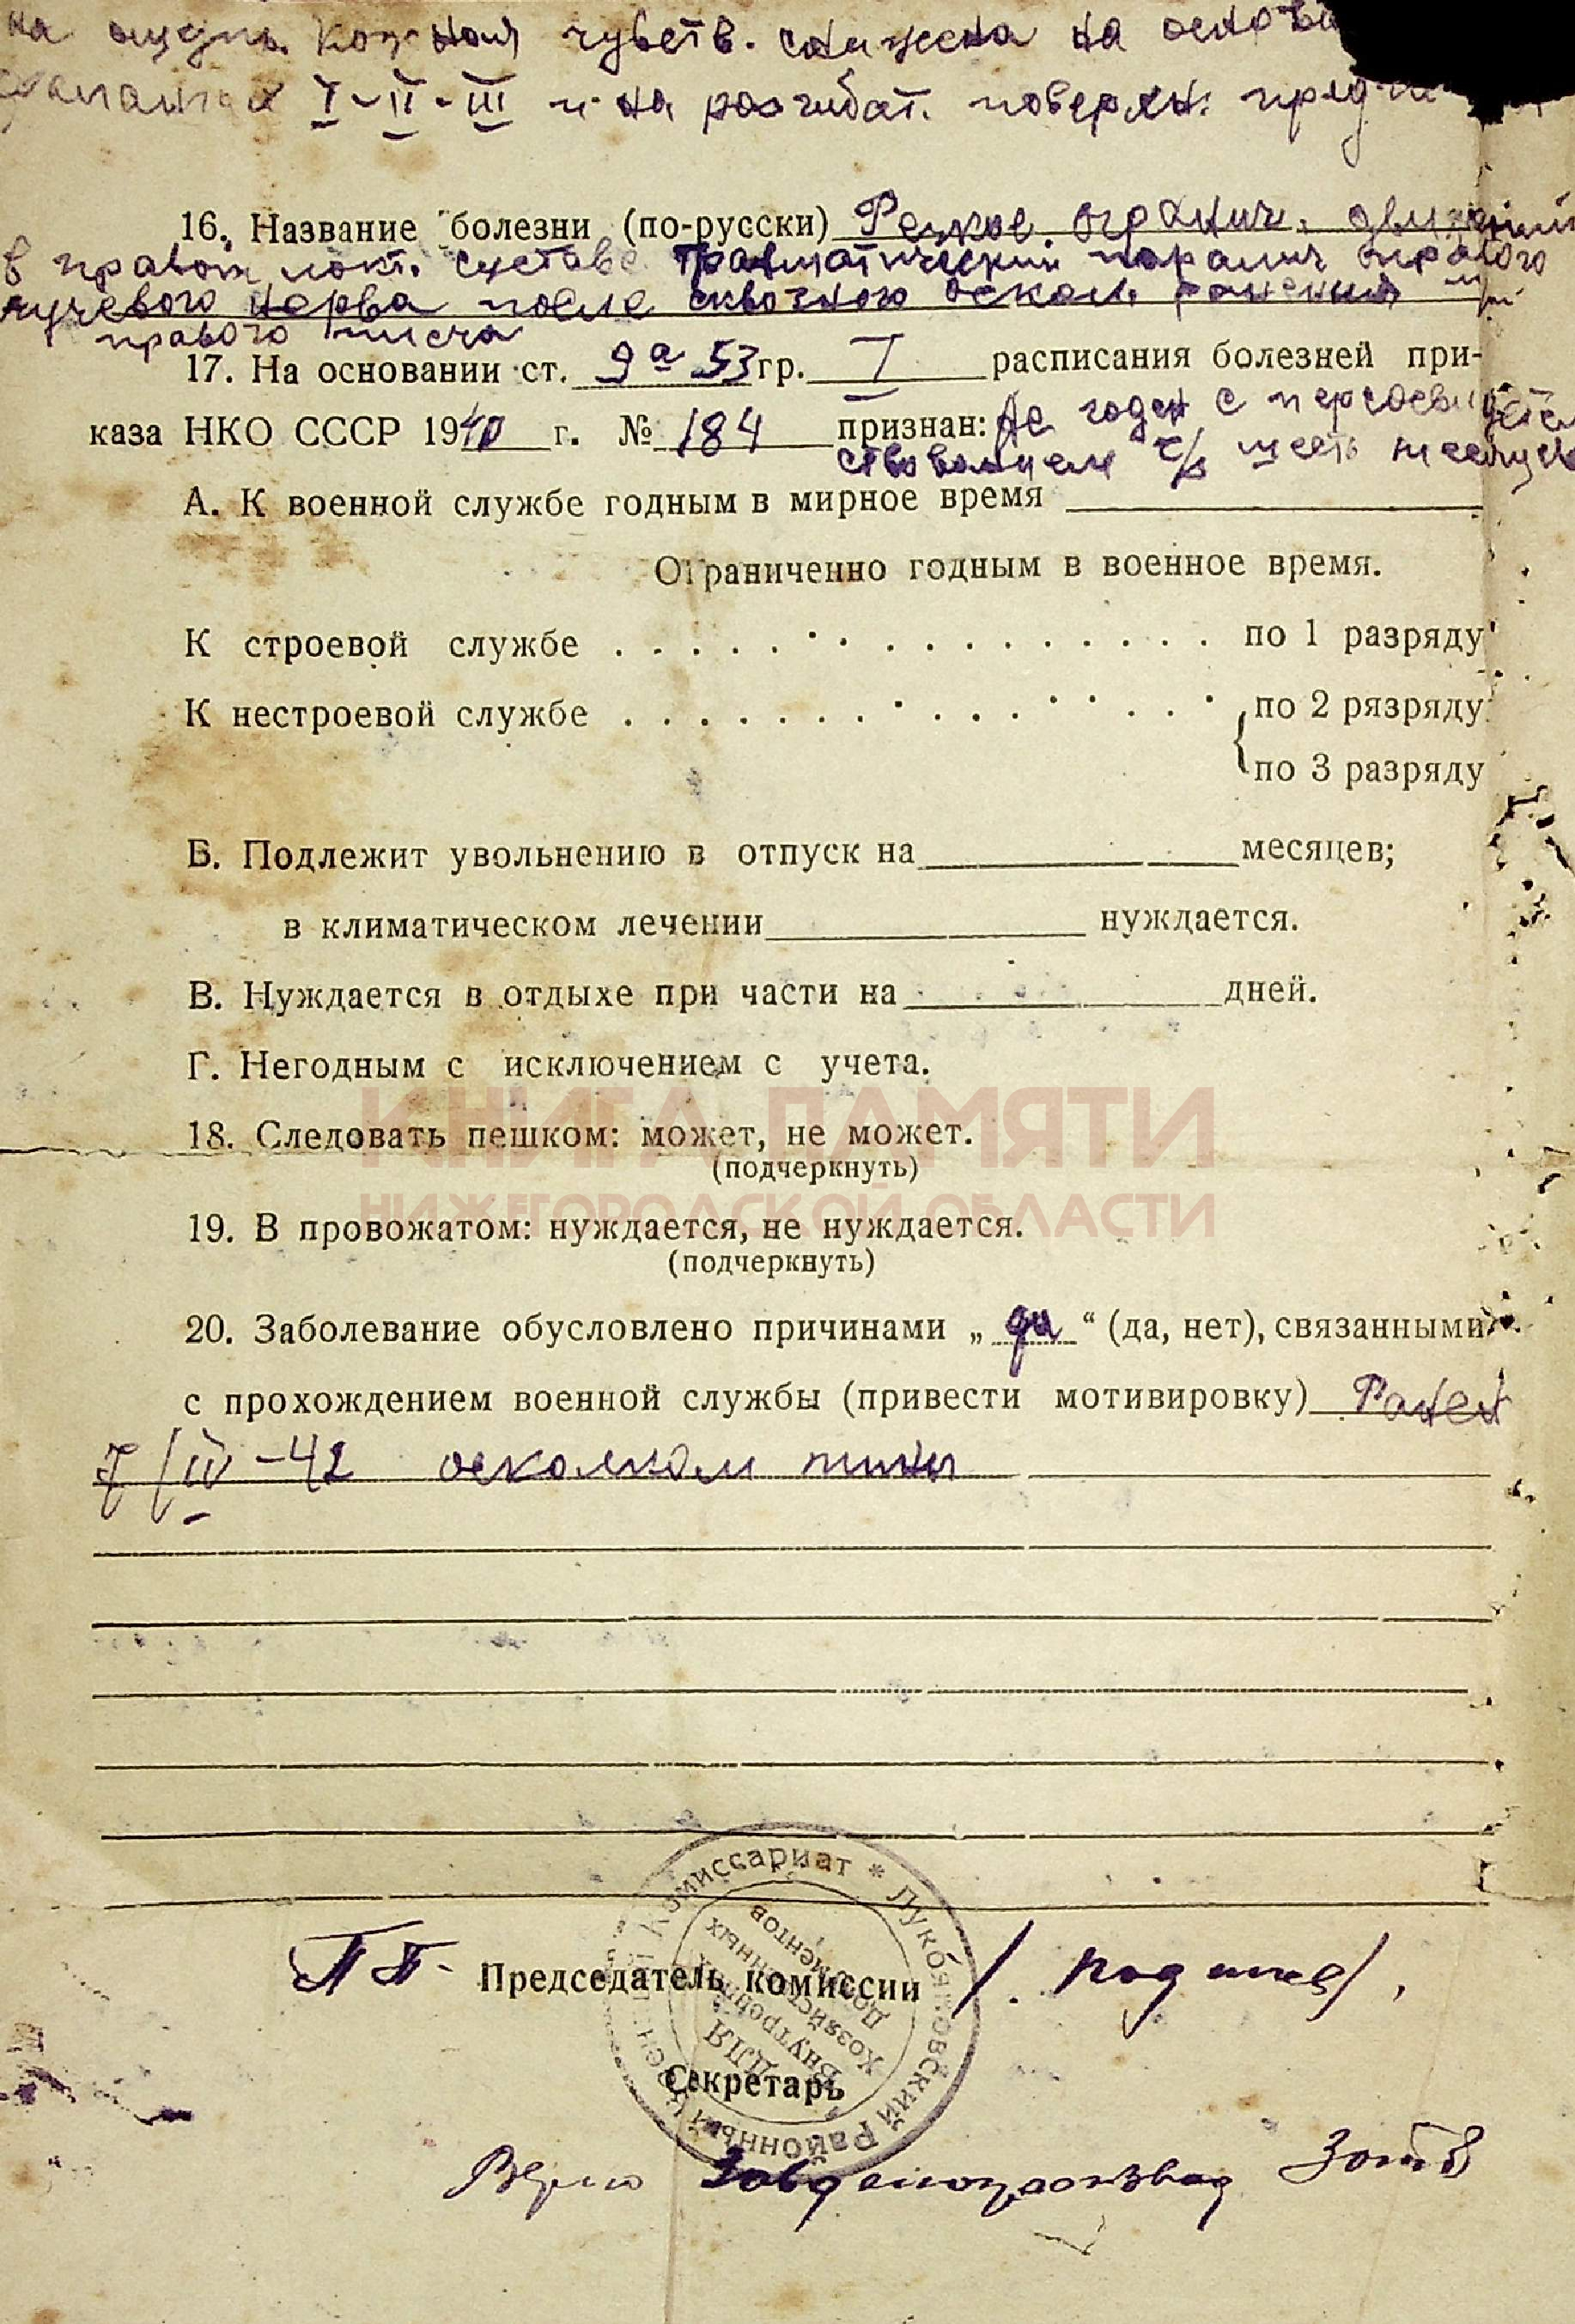 на ощупь. Кожная чувств. снижена на основн
фалангах I-II-III и на разгибат. поверхн.
16. Название болезни (по-русски) Резкое огранич. движений
в правом локт. суставе. Травматический паралич правого
лучевого нерва после сквозного оскол. ранения
правого плеча
17. На основании ст. 9а 53 гр. I расписания болезней при-
каза НКО СССР 1940 г. № 184 признан: Не годен с переосвидетель
ствованием ч/з шесть месяцев
А. К военной службе годным в мирное время
Ограниченно годным в военное время.
К строевой службе . . . . . . . . . . . . . . . . по 1 разряду
К нестроевой службе . . . . . . . . . . . . . . . . по 2 рязряду
по 3 разряду
Б. Подлежит увольнению в отпуск на месяцев;
в климатическом лечении нуждается.
В. Нуждается в отдыхе при части на дней.
Г. Негодным с исключением с учета.
КНИГА ПАМЯТИ
18. Следовать пешком: может, не может.
(подчеркнуть)
НИЖЕГОРОДСКОЙ ОБЛАСТИ
19. В провожатом: нуждается, не нуждается.
(подчеркнуть)
20. Заболевание обусловлено причинами „да“ (да, нет), связанными
с прохождением военной службы (привести мотивировку) Ранен
7/IV-42 осколком мины
Лукояновский Районный Военный Комиссариат *
ДЛЯ
Внутренних
Хозяйственных
Документов
ПП. Председатель комиссии / подпись/.
Секретарь
Верно Зотов